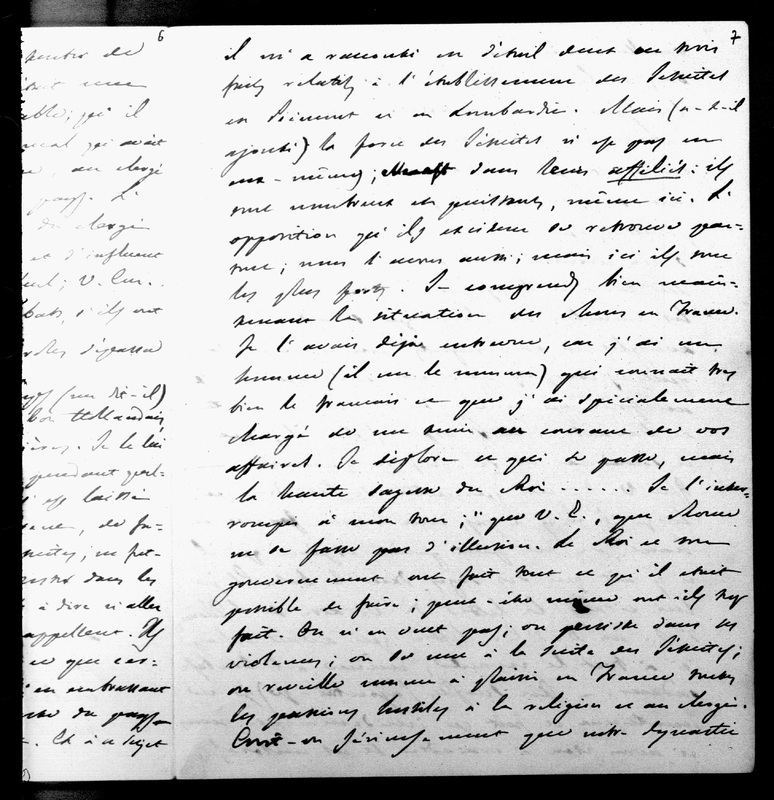 6
hautes de
able; qu'il
qui avait
au clergé
pays. Le
du clergé
et d'influent
s'ils ont
(me dit-il)
bon Hollandais
Je le lui
pendant quel-
laissé
de fu-
dans les
à dire si elles
appellent. Ils
ce que cer-
en embrassant
du pays
Et à ce sujet
7
il m'a raconté en détail deux ou trois
faits relatifs à l'établissement des Jésuites
en Piémont et en Lombardie. Mais (a-t-il
ajouté) la force des Jésuites n'est pas en
eux-mêmes; dans leurs affiliés: ils
sont nombreux et puissants, même ici. L'
opposition qu'ils excitent se retrouve par-
tout; nous l'avons aussi; mais ici ils sont
les plus forts. Je comprends bien main-
tenant la situation des choses en France.
Je l'avais déjà entrevue, car j'ai un
homme (il me le nomma) qui connait très
bien le français et que j'ai spécialement
chargé de me tenir au courant de vos
affaires. Je déplore ce qui se passe, mais
la haute sagesse du Roi ...... Je l'inter-
rompis à mon tour; "que V. E., que Rome
ne se fasse pas d'illusion. Le Roi et son
gouvernement ont fait tout ce qu'il était
possible de faire; peut-être même ont-ils trop
fait. On n'en veut pas; on persiste dans les
violences; on se met à la suite des Jésuites;
on réveille comme à plaisir en France toutes
les passions hostiles à la religion et au clergé.
Croit-on sérieusement que notre dynastie